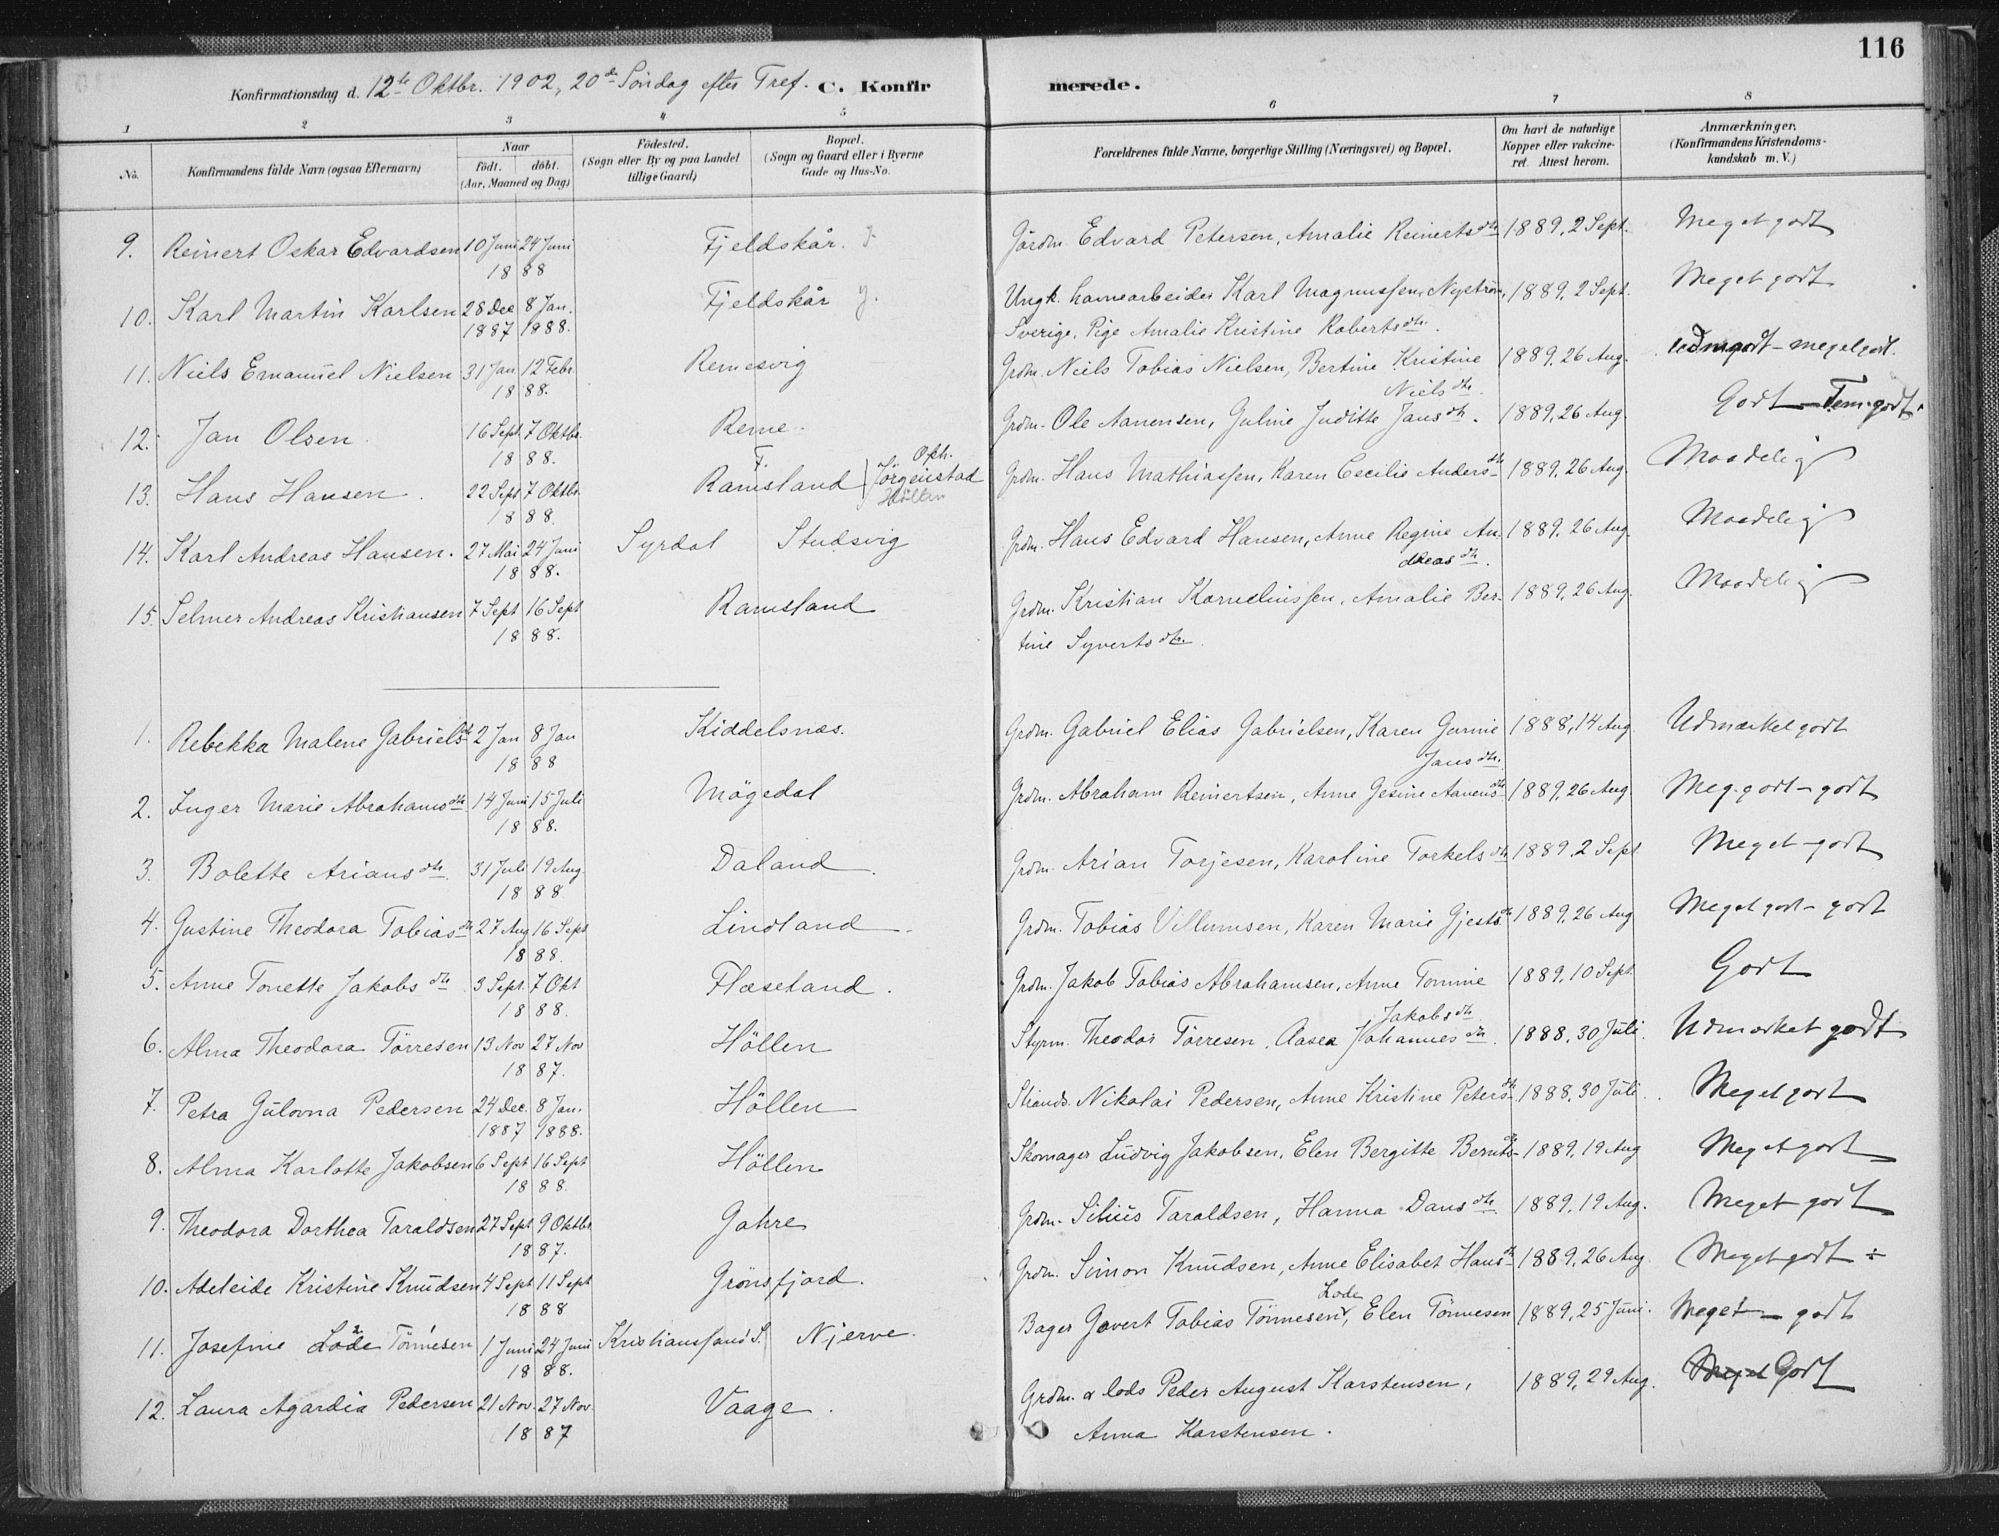 116
Konfirmationsdag d. 12te Oktbr. 1902, 20de Söndag efter Tref. C. Konfirmerede.
1 2 3 4 5 6 7 8
No. Konfirmandens fulde Navn (ogsaa Efternavn) Naar födt. döbt. (Aar, Maaned og Dag) Födested. (Sogn eller By og paa Landet tillige Gaard) Bopæl. (Sogn og Gaard eller i Byerne Gade og Hus-No. Forældrenes fulde Navne, borgerlige Stilling (Næringsvei) og Bopæl. Om havt de naturlige Kopper eller vakcineret. Attest herom. Anmærkninger. (Konfirmandens Kristendomskundskab m. V.)
9. Reinert Oskar Edvardsen 10 Juni 24 Juni Fjeldskår. Gårdm. Edvard Petersen, Amalie Reinertsdtr 1889, 2 Sept. Meget godt
1888
10. Karl Martin Karlsen 28 Dec 8 Jan. Fjeldskår Ungk. havnearbeider Karl Magnussen, Nyström, 1889, 2 Sept. Meget godt
1887 1888. Sverige, Pige Amalie Kristine Robertsdtr.
11. Niels Emanuel Nielsen 31 Jan 12 Febr. Remesvig Grdm. Niels Tobias Nielsen, Bertine Kristine 1889, 26 Aug. Udm godt - meget godt.
1888. Nielsdtr.
12. Jan Olsen 16 Sept 7 Oktbr. Reme. Grdm. Ole Aanensen, Guline Juditte Jansdtr. 1889, 26 Aug. Godt - Tem. godt.
1888.
13. Hans Hansen. 22 Sept 7 Oktbr. F. Ramsland } Oph. Jörgenstad Höllen Grdm. Hans Mathiassen, Karen Cecilie Andersdtr 1889, 26 Aug. Maadelig
1888.
14. Karl Andreas Hansen. 27 Mai 24 Juni Syrdal Studsvig Grdm. Hans Edvard Hansen, Anne Regine An- 1889, 26 Aug. Maadelig
1888. dreasdtr.
15. Selmer Andreas Kristiansen 7 Sept 16 Sept Ramsland Grdm. Kristian Korneliussen, Amalie Ber- 1889, 26 Aug. Maadelig
1888. tine Syvertsdtr.
1. Rebekka Malene Gabrielsdt 2 Jan 8 Jan Kiddelsnæs. Grdm. Gabriel Elias Gabrielsen, Karen Gunnie 1888, 14 Aug. Udmærket godt
1888 Jansdtr.
2. Inger Marie Abrahamsdtr 14 Juni 15 Juli Mögedal Grdm. Abraham Reinertsen, Anne Gesine Aanensdtr 1889, 26 Aug. Meg. godt - godt
1888.
3. Bolette Ariansdtr 31 Juli 19 Aug. Daland. Grdm. Arian Torjesen, Karoline Torkelsdtr 1889, 2 Sept Meget godt
1888
4. Gustine Theodora Tobiasdtr 27 Aug 16 Sept Lindland Grdm. Tobias Villumsen, Karen Marie Gjestsdtr 1889, 26 Aug Meget godt - godt
1888.
5. Anne Tonette Jakobsdtr 3 Sept. 7 Okt Flæseland. Grdm. Jakob Tobias Abrahamsen, Anne Tomine 1889, 10 Sept. Godt
1888. Jakobsdtr
6. Alma Theodora Törresen 13 Nov 27 Nov Höllen Styrm. Theodor Törresen, Aasea Johannesdtr. 1888, 30 Juli. Udmærket godt
1887.
7. Petra Gulovna Pedersen 24 Dec. 8 Jan. Höllen Strands. Nikolai Pedersen, Anne Kristine Petersdtr 1888, 30 Juli. Meget godt
1887 1888.
8. Alma Karlotte Jakobsen 6 Sept 16 Sept Höllen Skomager Ludvig Jakobsen, Elen Bergitte Berntsdtr 1889, 19 Aug Meget godt
1888.
9. Theodora Dorthea Taraldsen 27 Sept 9 Oktbr. Gahre Grdm. Silius Taraldsen, Hanna Dansdtr 1889, 19 Aug. Meget godt
1887.
10. Adeleide Kristine Knudsen 4 Sept 11 Sept Grönsfjord. Grdm. Simon Knudsen, Anne Elisabet Hansdtr 1889, 26 Aug. Meget godt ÷
1888 Lode
11. Josefine Lode Tönnesen 1 Juni 24 Juni Kristianssand S. Njerve. Bager Govert Tobias Tönnesen, Elen Tönnesen 1889, 25 Juni. Meget - godt
1888.
12. Laura Agardia Pedersen 21 Nov. 27 Nov. Vaage. Grdm. & lods Peder August Karstensen, 1889, 29 Aug. Meget Godt
1887 Anna Karstensen.